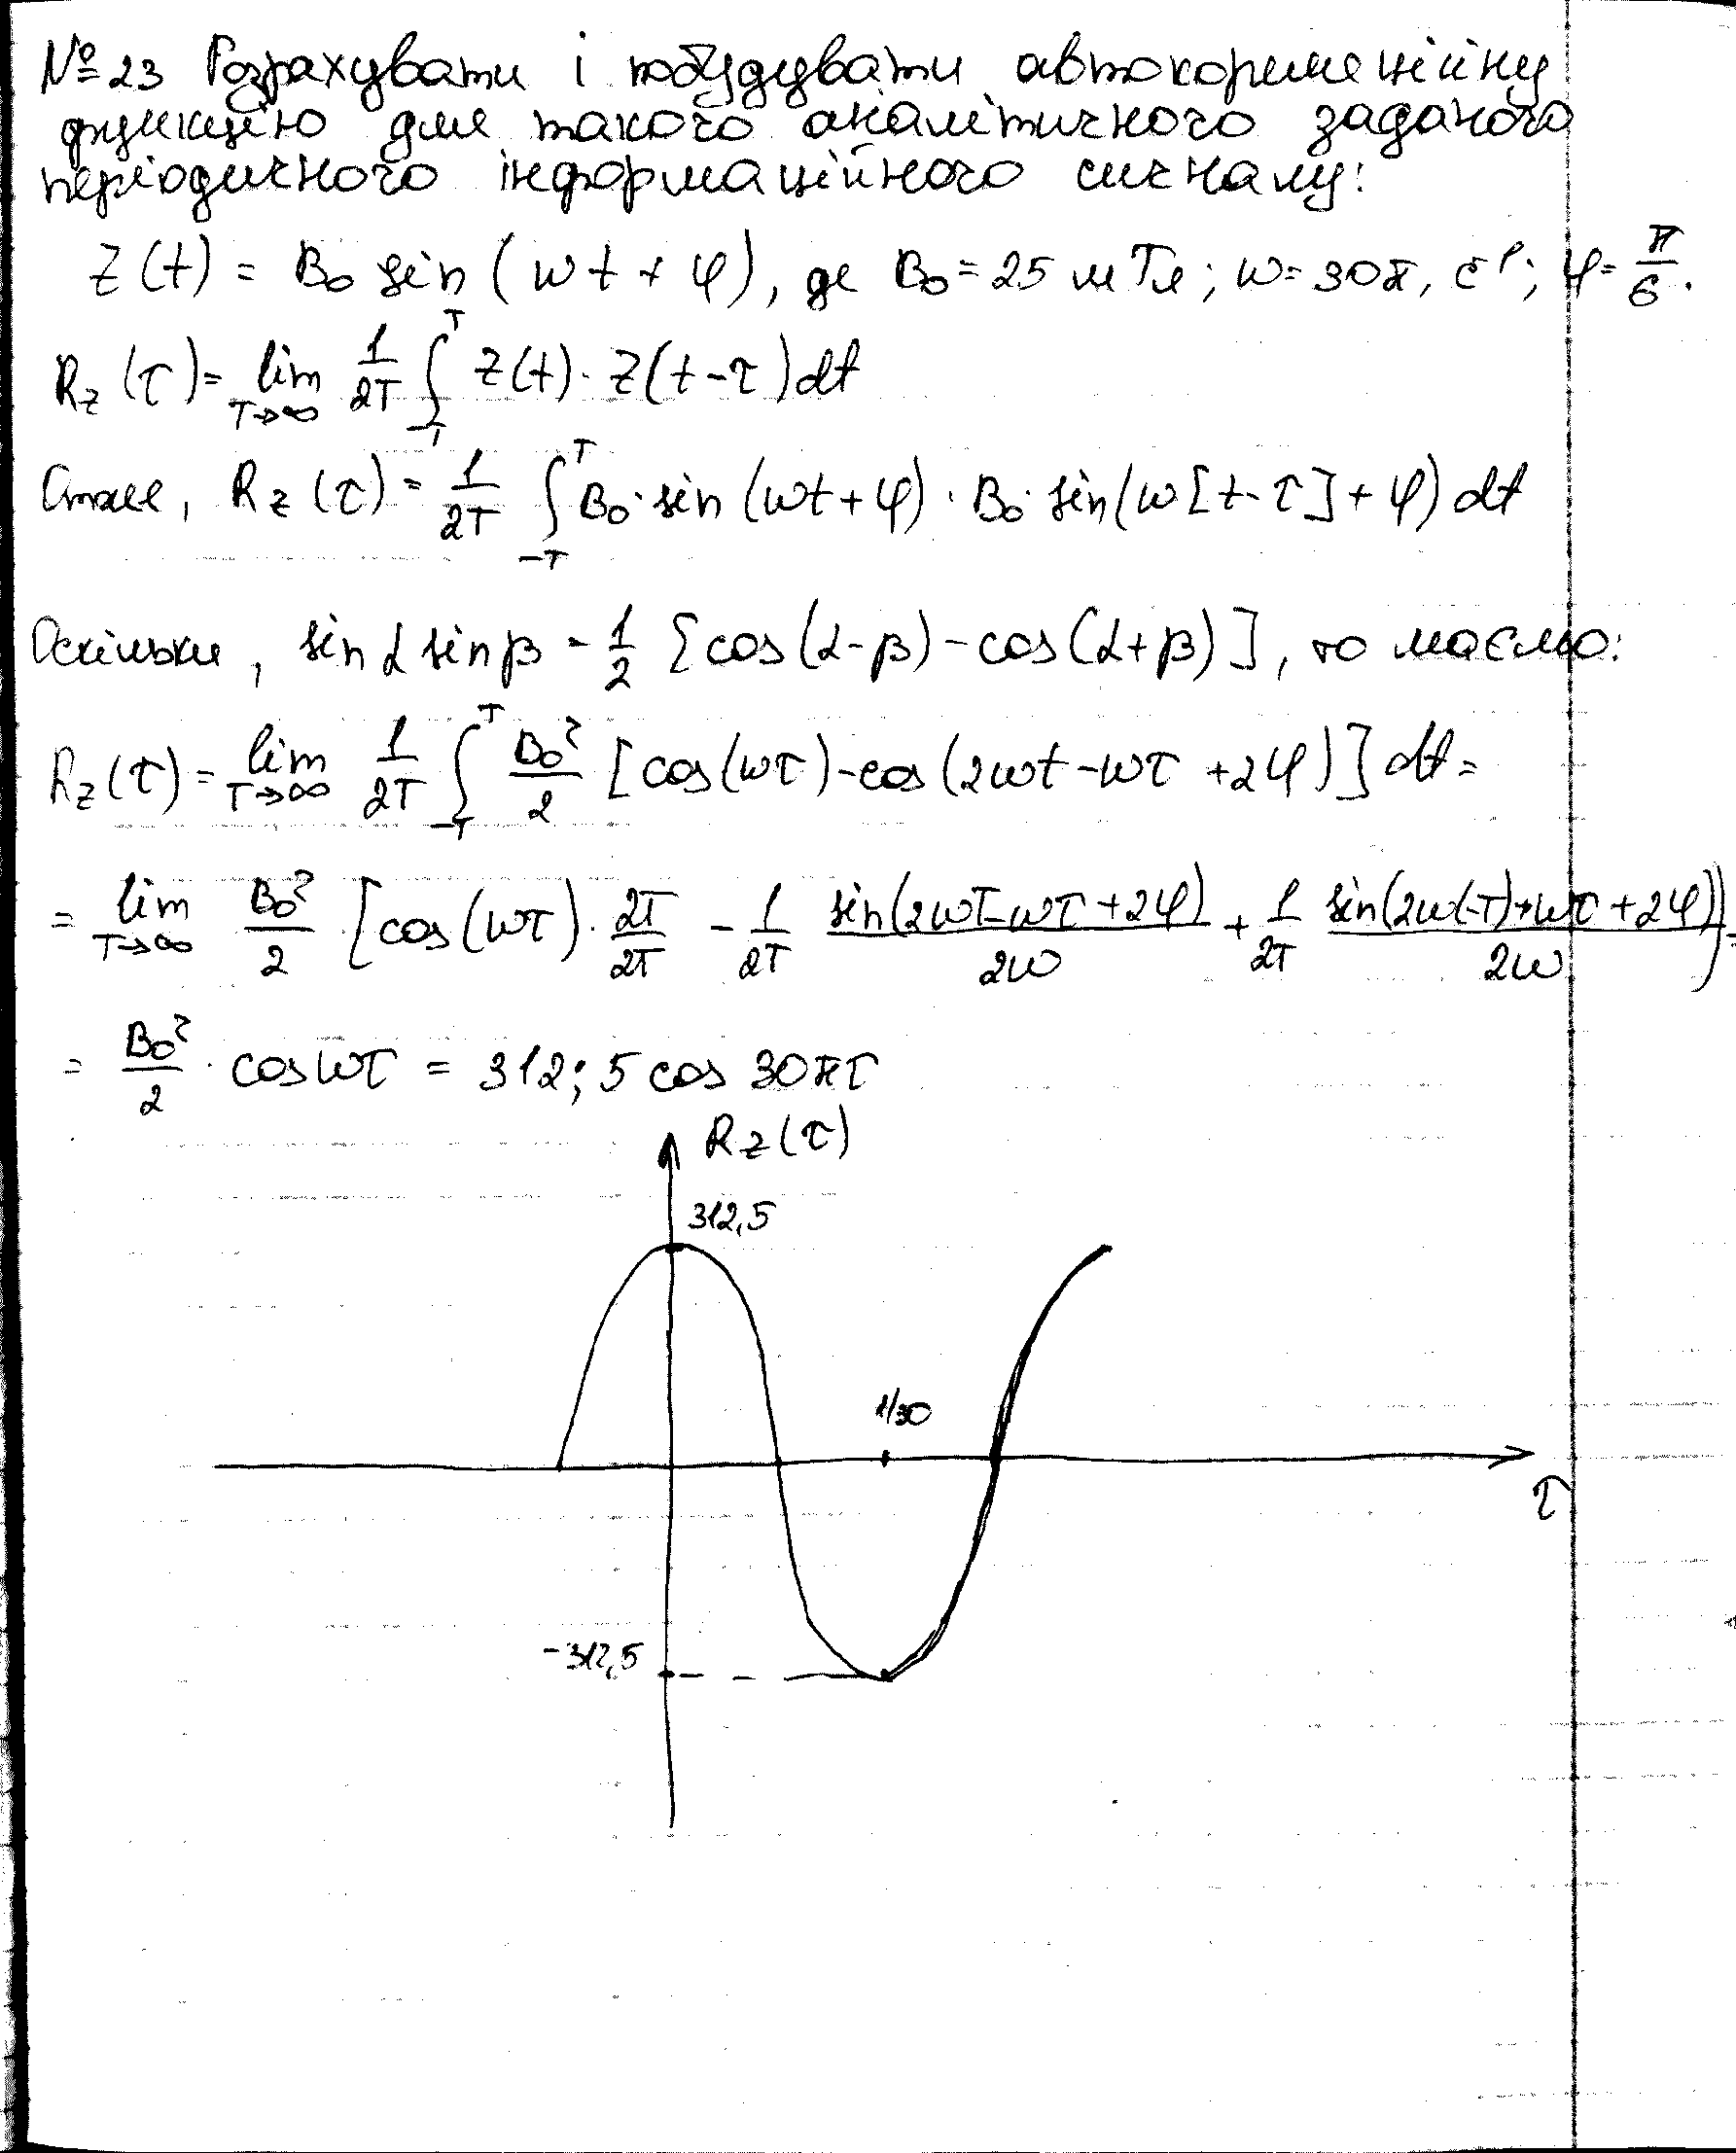 №23 Розрахувати і побудувати автокореляційну
функцію для такого аналітичного заданого
періодичного інформаційного сигналу:
Z(t) = B₀ sin(ωt + φ), де B₀ = 25 мТл; ω = 30π, с⁻¹; φ = π/6.
R_z(τ) = lim_{T→∞} 1/2T ∫_{-T}^{T} Z(t)·Z(t-τ)dt
Отже, R_z(τ) = 1/2T ∫_{-T}^{T} B₀·sin(ωt+φ)·B₀·sin(ω[t-τ]+φ)dt
Оскільки, sinα sinβ = 1/2 [cos(α-β)-cos(α+β)], то маємо:
R_z(τ) = lim_{T→∞} 1/2T ∫_{-T}^{T} B₀²/2 [cos(ωτ)-cos(2ωt-ωτ+2φ)]dt =
= lim_{T→∞} B₀²/2 [cos(ωτ)·2T/2T - 1/2T sin(2ωT-ωτ+2φ)/2ω + 1/2T sin(2ω(-T)+ωτ+2φ)/2ω] =
= B₀²/2 · cosωτ = 312;5 cos 30πτ
R_z(τ)
312,5
1/30
τ
-312,5